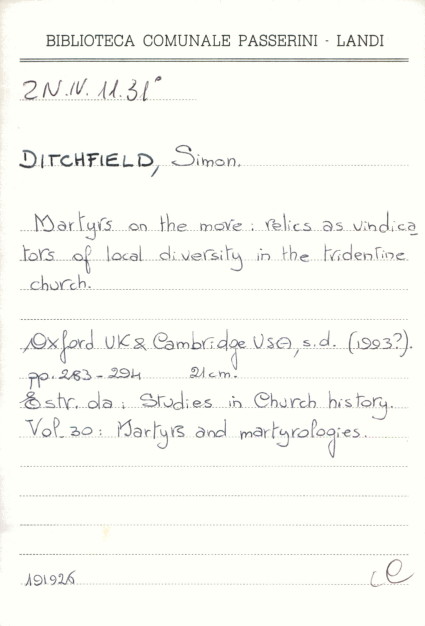 BIBLIOTECA COMUNALE PASSERINI - LANDI
2N.IV. 11.31°
DITCHFIELD, Simon.
Martyrs on the move: relics as vindica
tors of local diversity in the tridentine
church.
Oxford UK & Cambridge USA, s.d. (1993?).
pp. 283-294 21cm.
Estr. da: Studies in Church history.
Vol. 30: Martyrs and martyrologies.
191926